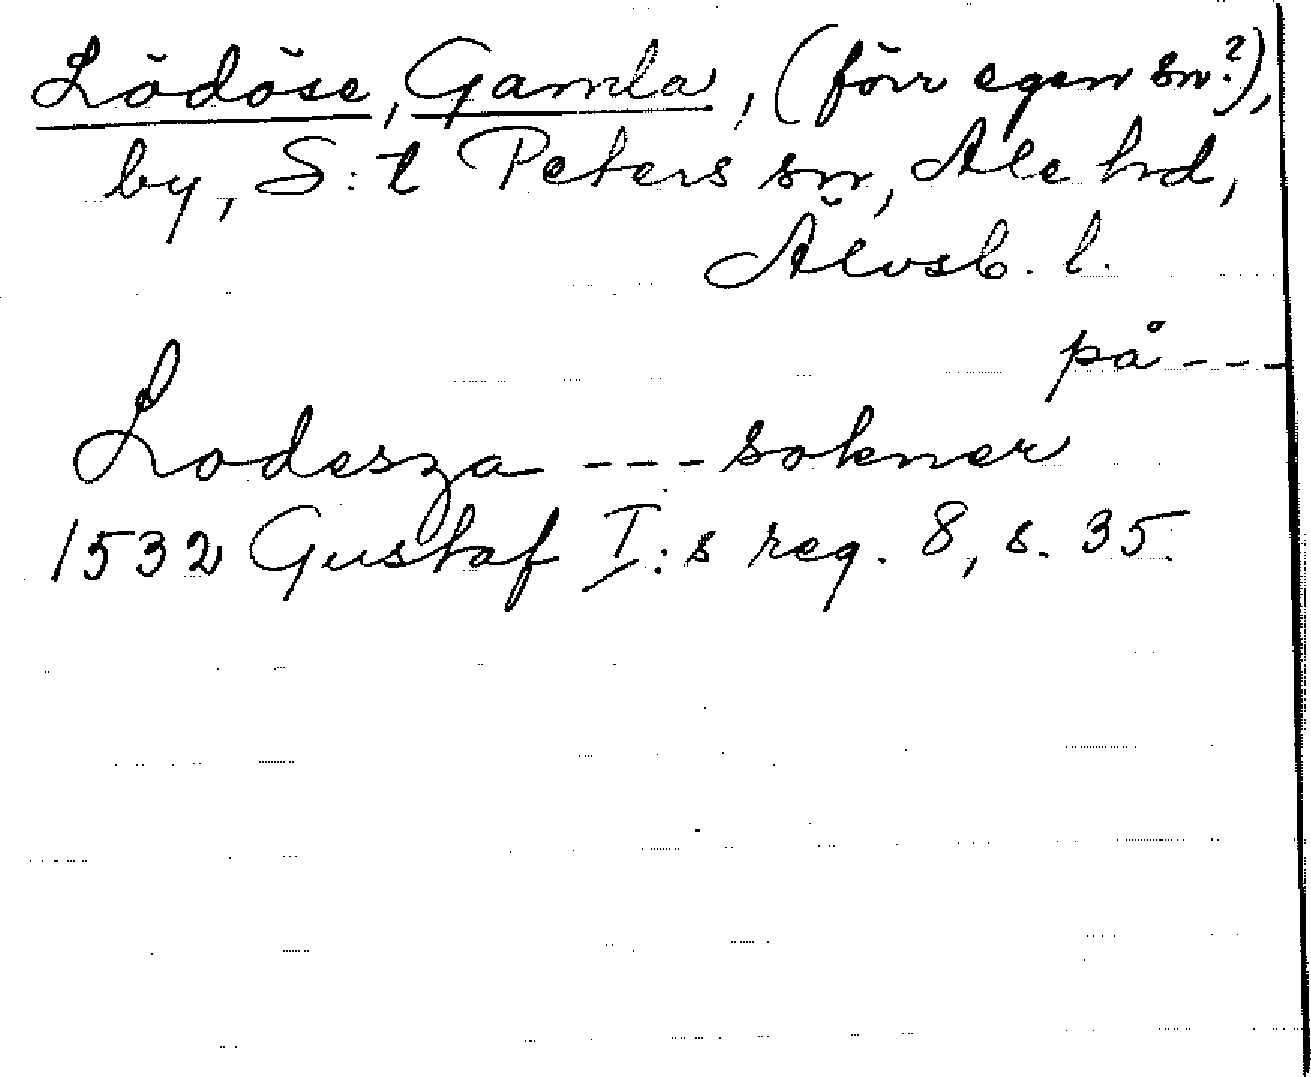 Lödöse, Gamla, (förr egen sn?),
by, S:t Peters sn, Ale hd,
Älvsb. l.
på ---
Lodesza --- sokner
1532 Gustaf I:s reg. 8, s. 35.